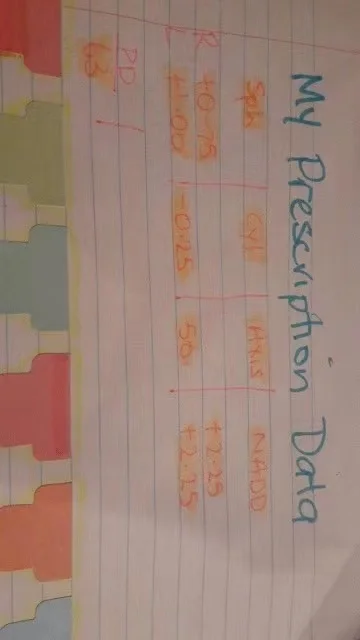 My Prescription Data
Sph Cyl Axis NADD
R +0.75 +2.25
L +1.00 -0.25 50 +2.25
PD
63